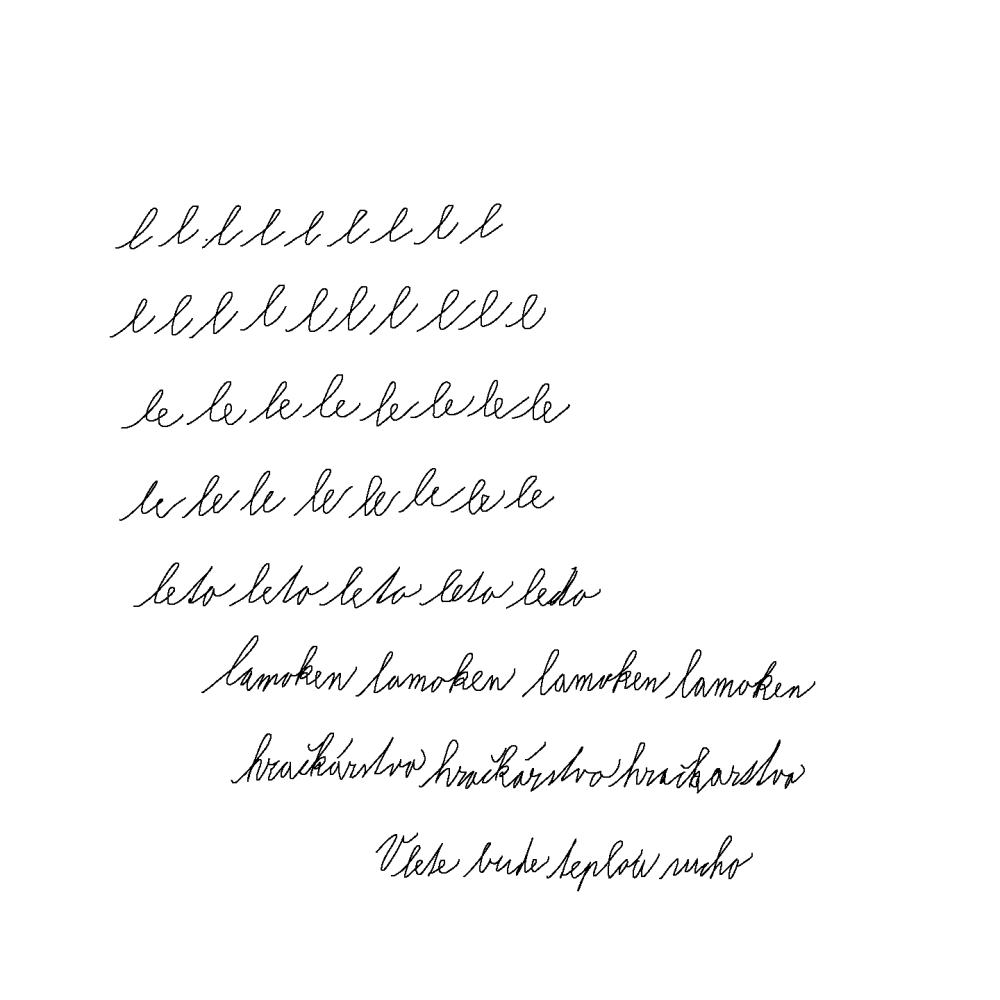 l l l l l l l l l
l l l l l l l l l l
le le le le le le le le
le le le le le le le le
leto leto leto leto ledo
lamoken lamoken lamoken lamoken
hračkárstvo hračkárstvo hračkarstvo
V lete bude teplo